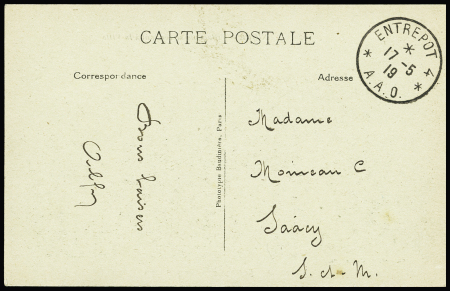 CARTE POSTALE
Correspondance
Adresse
ENTREPOT 4
17 - 5
19
* A.A.O. *
Bons baisers
Phototype Baudinière, Paris
Madame
Moineau C
Saâcy
S. et M.